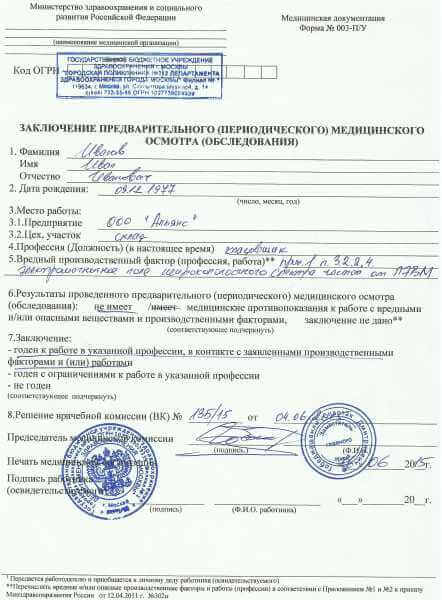 Министерство здравоохранения и социального
развития Российской Федерации
Медицинская документация
Форма № 003-П/У
(наименование медицинской организации)
ГОСУДАРСТВЕННОЕ БЮДЖЕТНОЕ УЧРЕЖДЕНИЕ
ЗДРАВООХРАНЕНИЯ г. МОСКВЫ
"ГОРОДСКАЯ ПОЛИКЛИНИКА №212 ДЕПАРТАМЕНТА
ЗДРАВООХРАНЕНИЯ ГОРОДА МОСКВЫ"
г. Москва, ул.
Код ОГРН
ЗАКЛЮЧЕНИЕ ПРЕДВАРИТЕЛЬНОГО (ПЕРИОДИЧЕСКОГО) МЕДИЦИНСКОГО
ОСМОТРА (ОБСЛЕДОВАНИЯ)
1. Фамилия Иванов
Имя Иван
Отчество Иванович
2. Дата рождения: 09.12.1977
(число, месяц, год)
3.Место работы:
3.1.Предприятие ООО "Альянс"
3.2.Цех, участок склад
4.Профессия (Должность) (в настоящее время) кладовщик
5.Вредный производственный фактор (профессия, работа)** прил.1 п. 3.2.2.4
электромагнитное поле широкополосного спектра частот от ПЭВМ
6.Результаты проведенного предварительного (периодического) медицинского осмотра
(обследования): не имеет /имеет медицинские противопоказания к работе с вредными
и/или опасными веществами и производственными факторами, заключение не дано**
(соответствующее подчеркнуть)
7.Заключение:
- годен к работе в указанной профессии, в контакте с заявленными производственными
факторами и (или) работами
- годен с ограничениями к работе в указанной профессии
- не годен
(соответствующее подчеркнуть)
8.Решение врачебной комиссии (ВК) № 135/15 от 04.06.
Председатель медицинской комиссии
(подпись) (Ф.И.О.)
Печать медицинской организации 06 2015г.
Подпись работника
(освидетельствуемого)
(подпись) (Ф.И.О. работника)
«__» ______20__г.
г. Москва
¹ Передается работодателю и приобщается к личному делу работника (освидетельствуемого)
**Перечислить вредные и/или опасные производственные факторы и работы (профессии) в соответствии с Приложением №1 и №2 к приказу
Минздравсоцразвития России от 12.04.2011 г. №302н